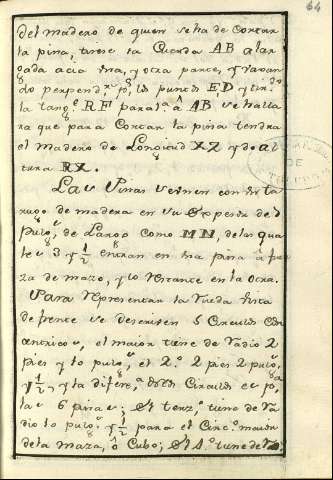 64
del madero de quien se ha de cortar
la pina, tirese la Cuerda AB alar
gada acia una, y otra parte, y
do perpend.s p.r los puntos ED y tir.o
la tang.e RF paral.a â AB se halla
ra que para Cortar la pina tendra
el madero de Longitud XZ y de al
tura RX.
Las Pinas se unen con un ta
rugo de madera en su espesor de 8
pulg.s, de Largo como MN, de las qua
les 3 y 1/2 entran en una pina â fuer
za de mazo, y lo restante en la otra.
Para representar la rueda vista
de frente se descriven 5 Circulos con
centricos, el maior tiene de radio 2
pies y 10 pulg.s, el 2.o 2 pies 2 pulg.s
y 1/2, y la difer.a de los Circulos es p.a
las 6 pinas; El terz.o tiene de ra
dio 10 pulg.s y 1/2 para el Circ.o maior
de la maza, ô Cubo; El 4.o tiene de
DE